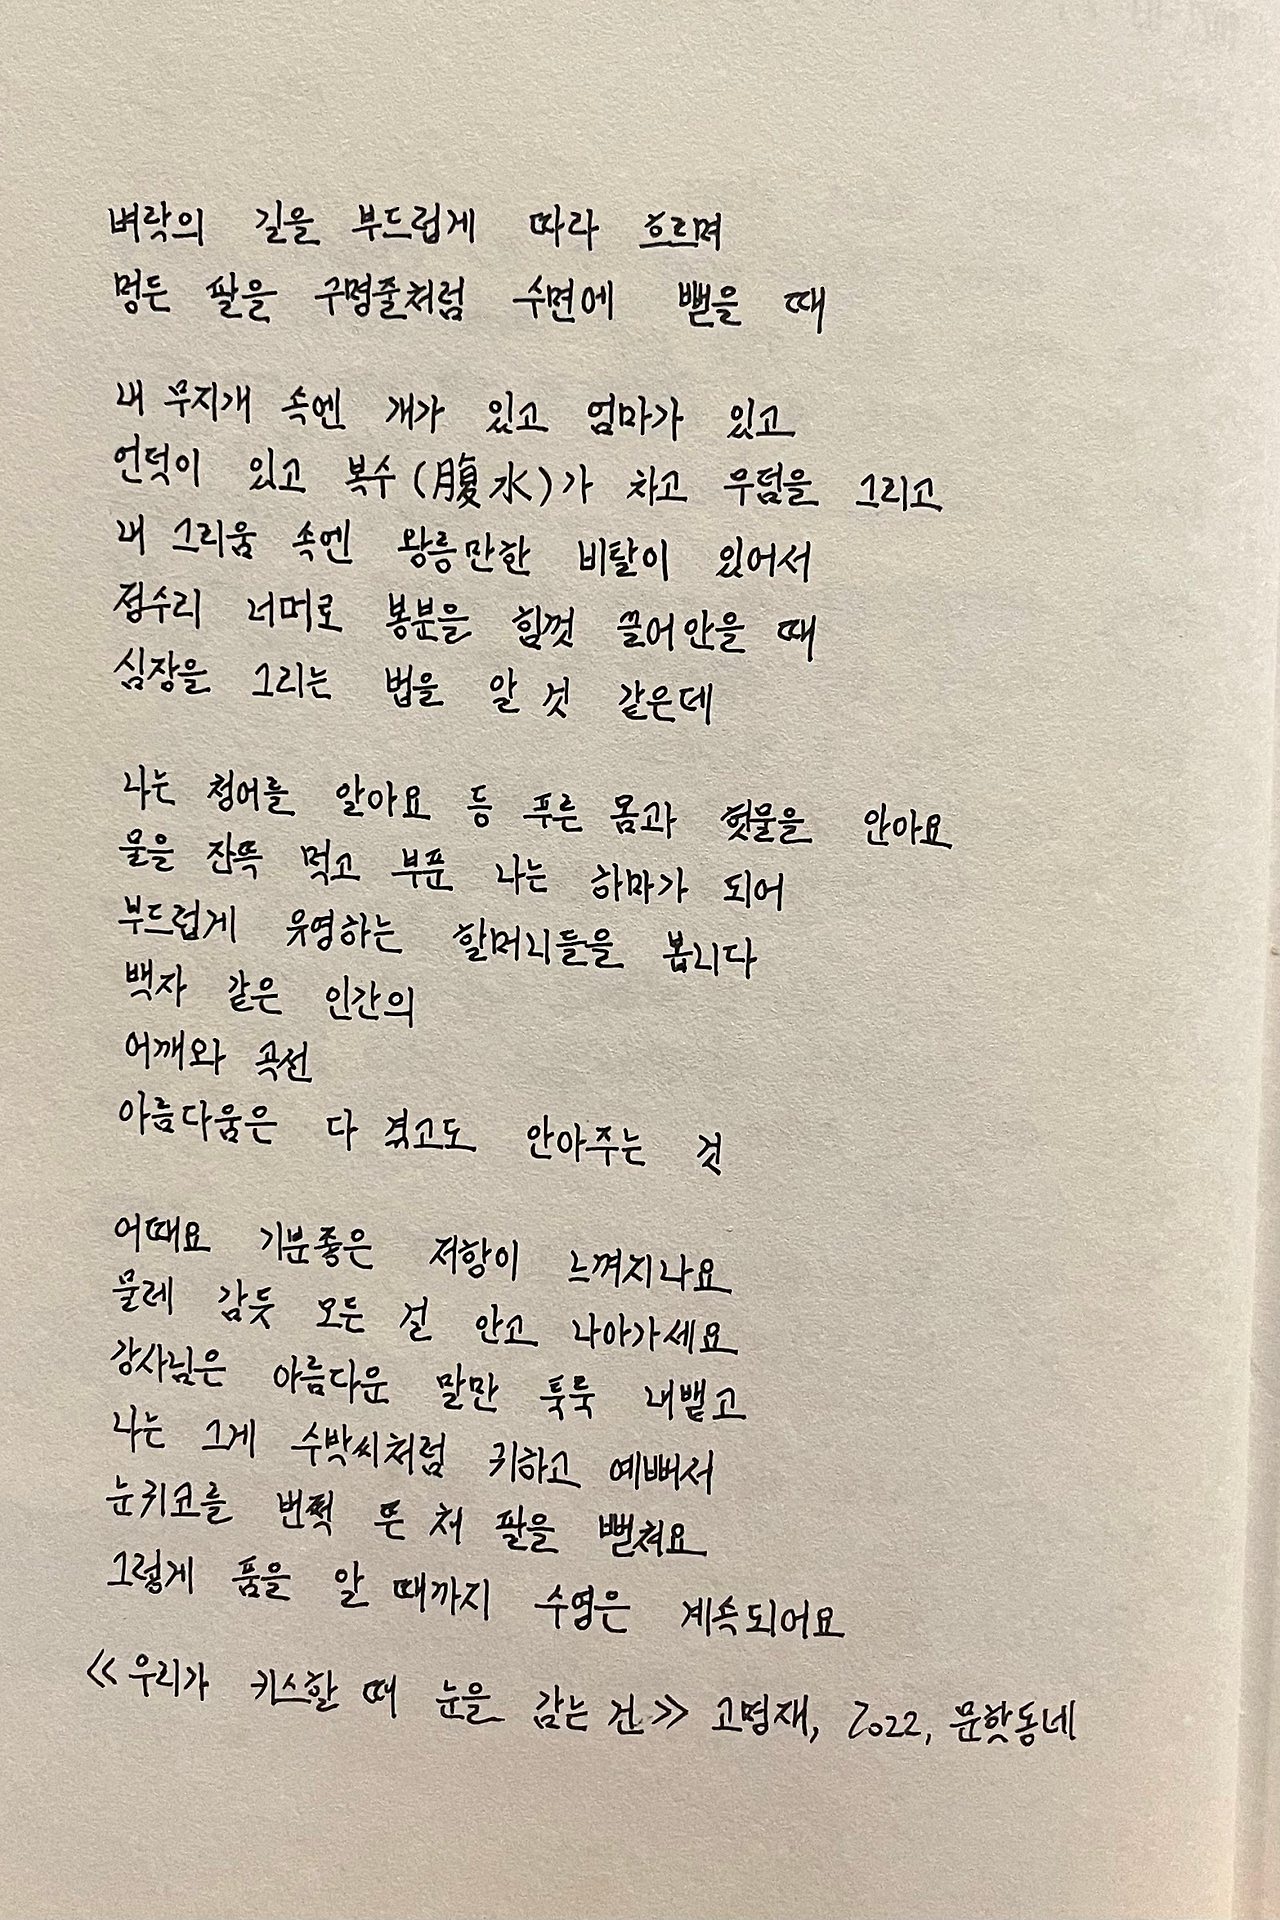 벼락의 길을 부드럽게 따라 흐르며
멍든 팔을 구명줄처럼 수면에 뻗을 때
내 무지개 속엔 개가 있고 엄마가 있고
언덕이 있고 복수(腹水)가 차고 무덤을 그리고
내 그리움 속엔 왕릉만한 비탈이 있어서
정수리 너머로 봉분을 힘껏 끌어안을 때
심장을 그리는 법을 알 것 같은데
나는 청어를 알아요 등 푸른 몸과 헛물을 안아요
물을 잔뜩 먹고 부푼 나는 하마가 되어
부드럽게 유영하는 할머니들을 봅니다
백자 같은 인간의
어깨와 곡선
아름다움은 다 겪고도 안아주는 것
어때요 기분좋은 저항이 느껴지나요
물레 감듯 모든 걸 안고 나아가세요
강사님은 아름다운 말만 툭툭 내뱉고
나는 그게 수박씨처럼 귀하고 예뻐서
눈귀코를 번쩍 뜬 채 팔을 뻗쳐요
그렇게 품을 알 때까지 수영은 계속되어요
《우리가 키스할 때 눈을 감는 건》 고명재, 2022, 문학동네